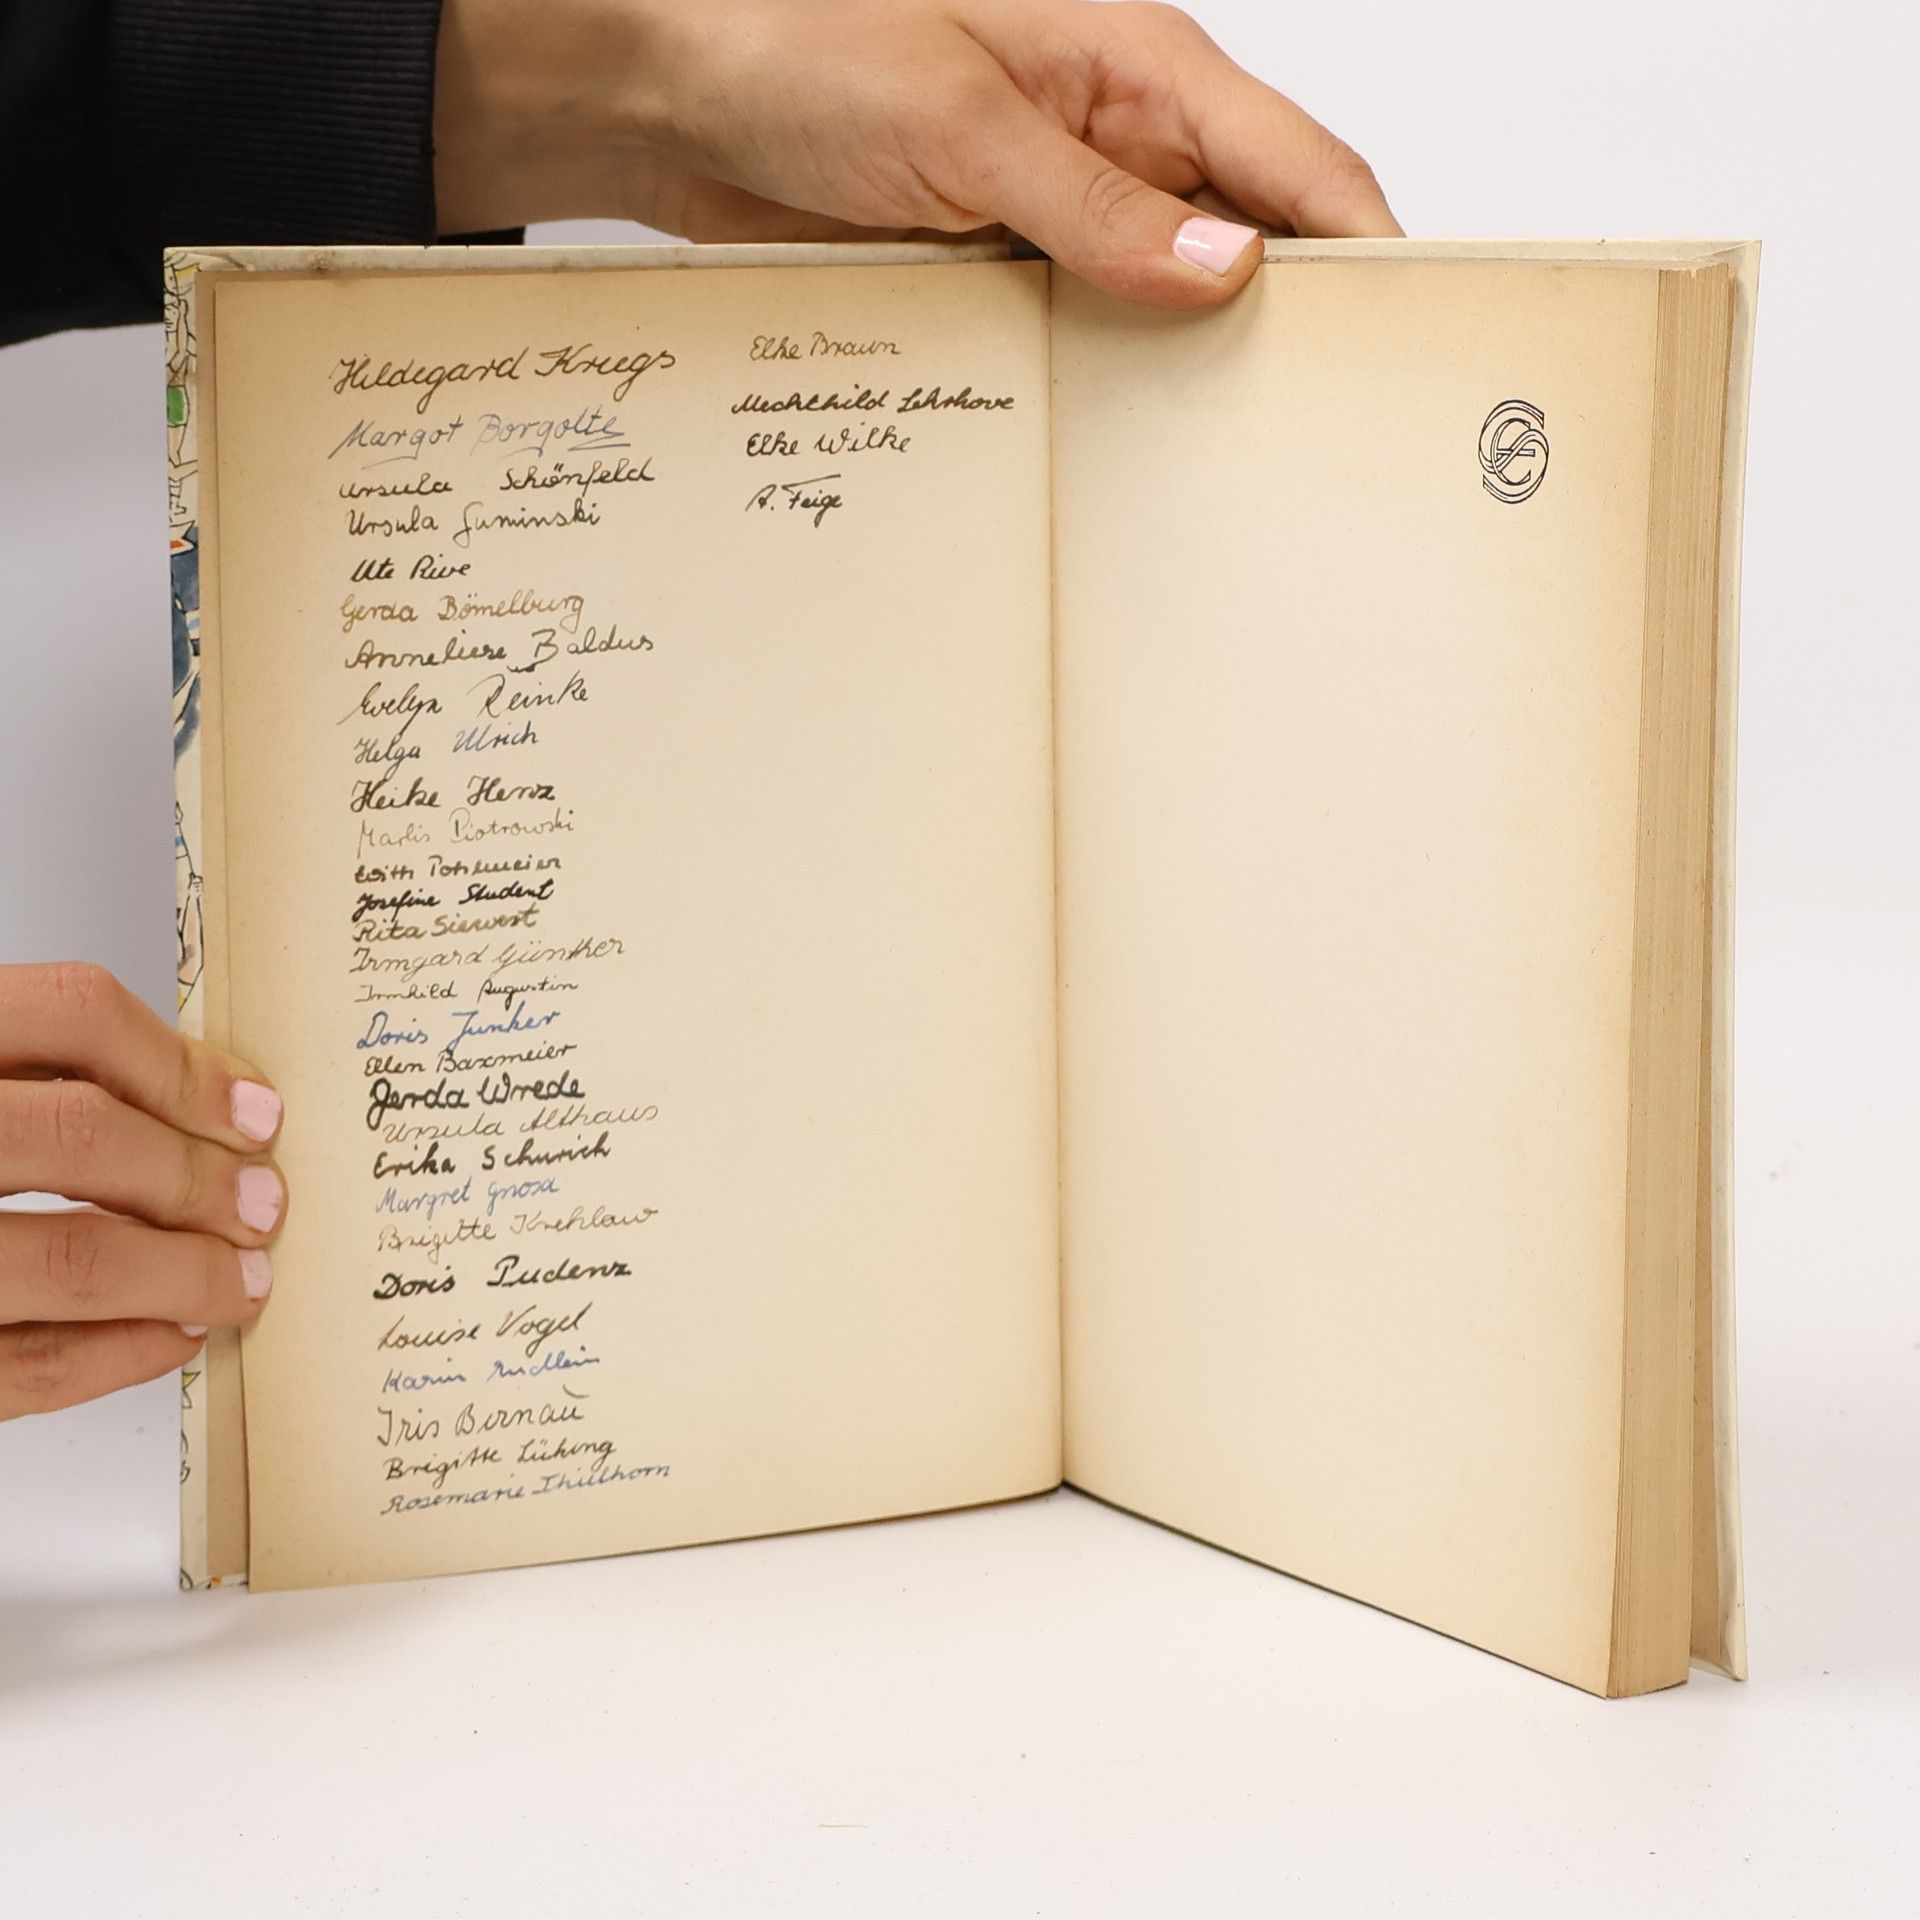 Hildegard Kruegs
Margot Borgolte
Ursula Schönfeld
Ursula
Ute Rive
Gerda Bömelburg
Anneliese Baldus
Evelyn Reinke
Helga Ulrich
Heike Henz
Marlis Piotrowski
Josefine Student
Rita Siewert
Irmgard Günther
Irmhild Augustin
Doris Junker
Ellen Baxmeier
Gerda Wrede
Ursula Althaus
Erika Schurich
Margret Gnosa
Brigitte Krehlaw
Doris Pudenz
Louise Vogel
Karin
Iris Bernau
Brigitte Lüking
Rosemarie Thielhorn
Elke Braun
Mechthild
Elke Wilke
A. Feige